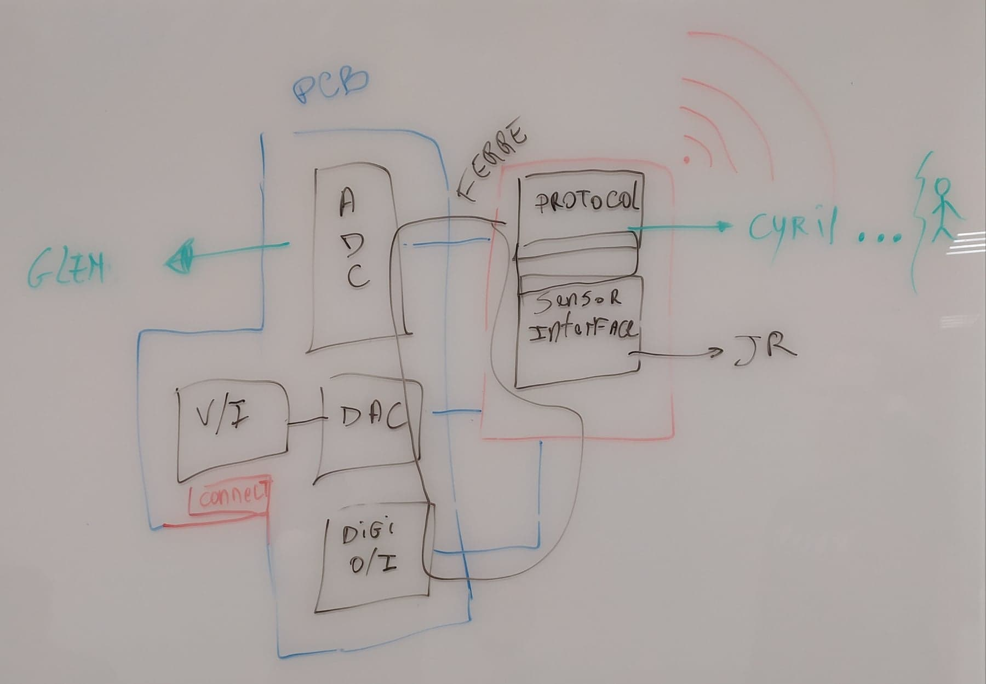 PCB
FERRE
A
D
C
PROTOCOL
CYRIL ...
GLEN
Sensor
InterFACE
JR
V/I
DAC
connect
DiGi
O/I